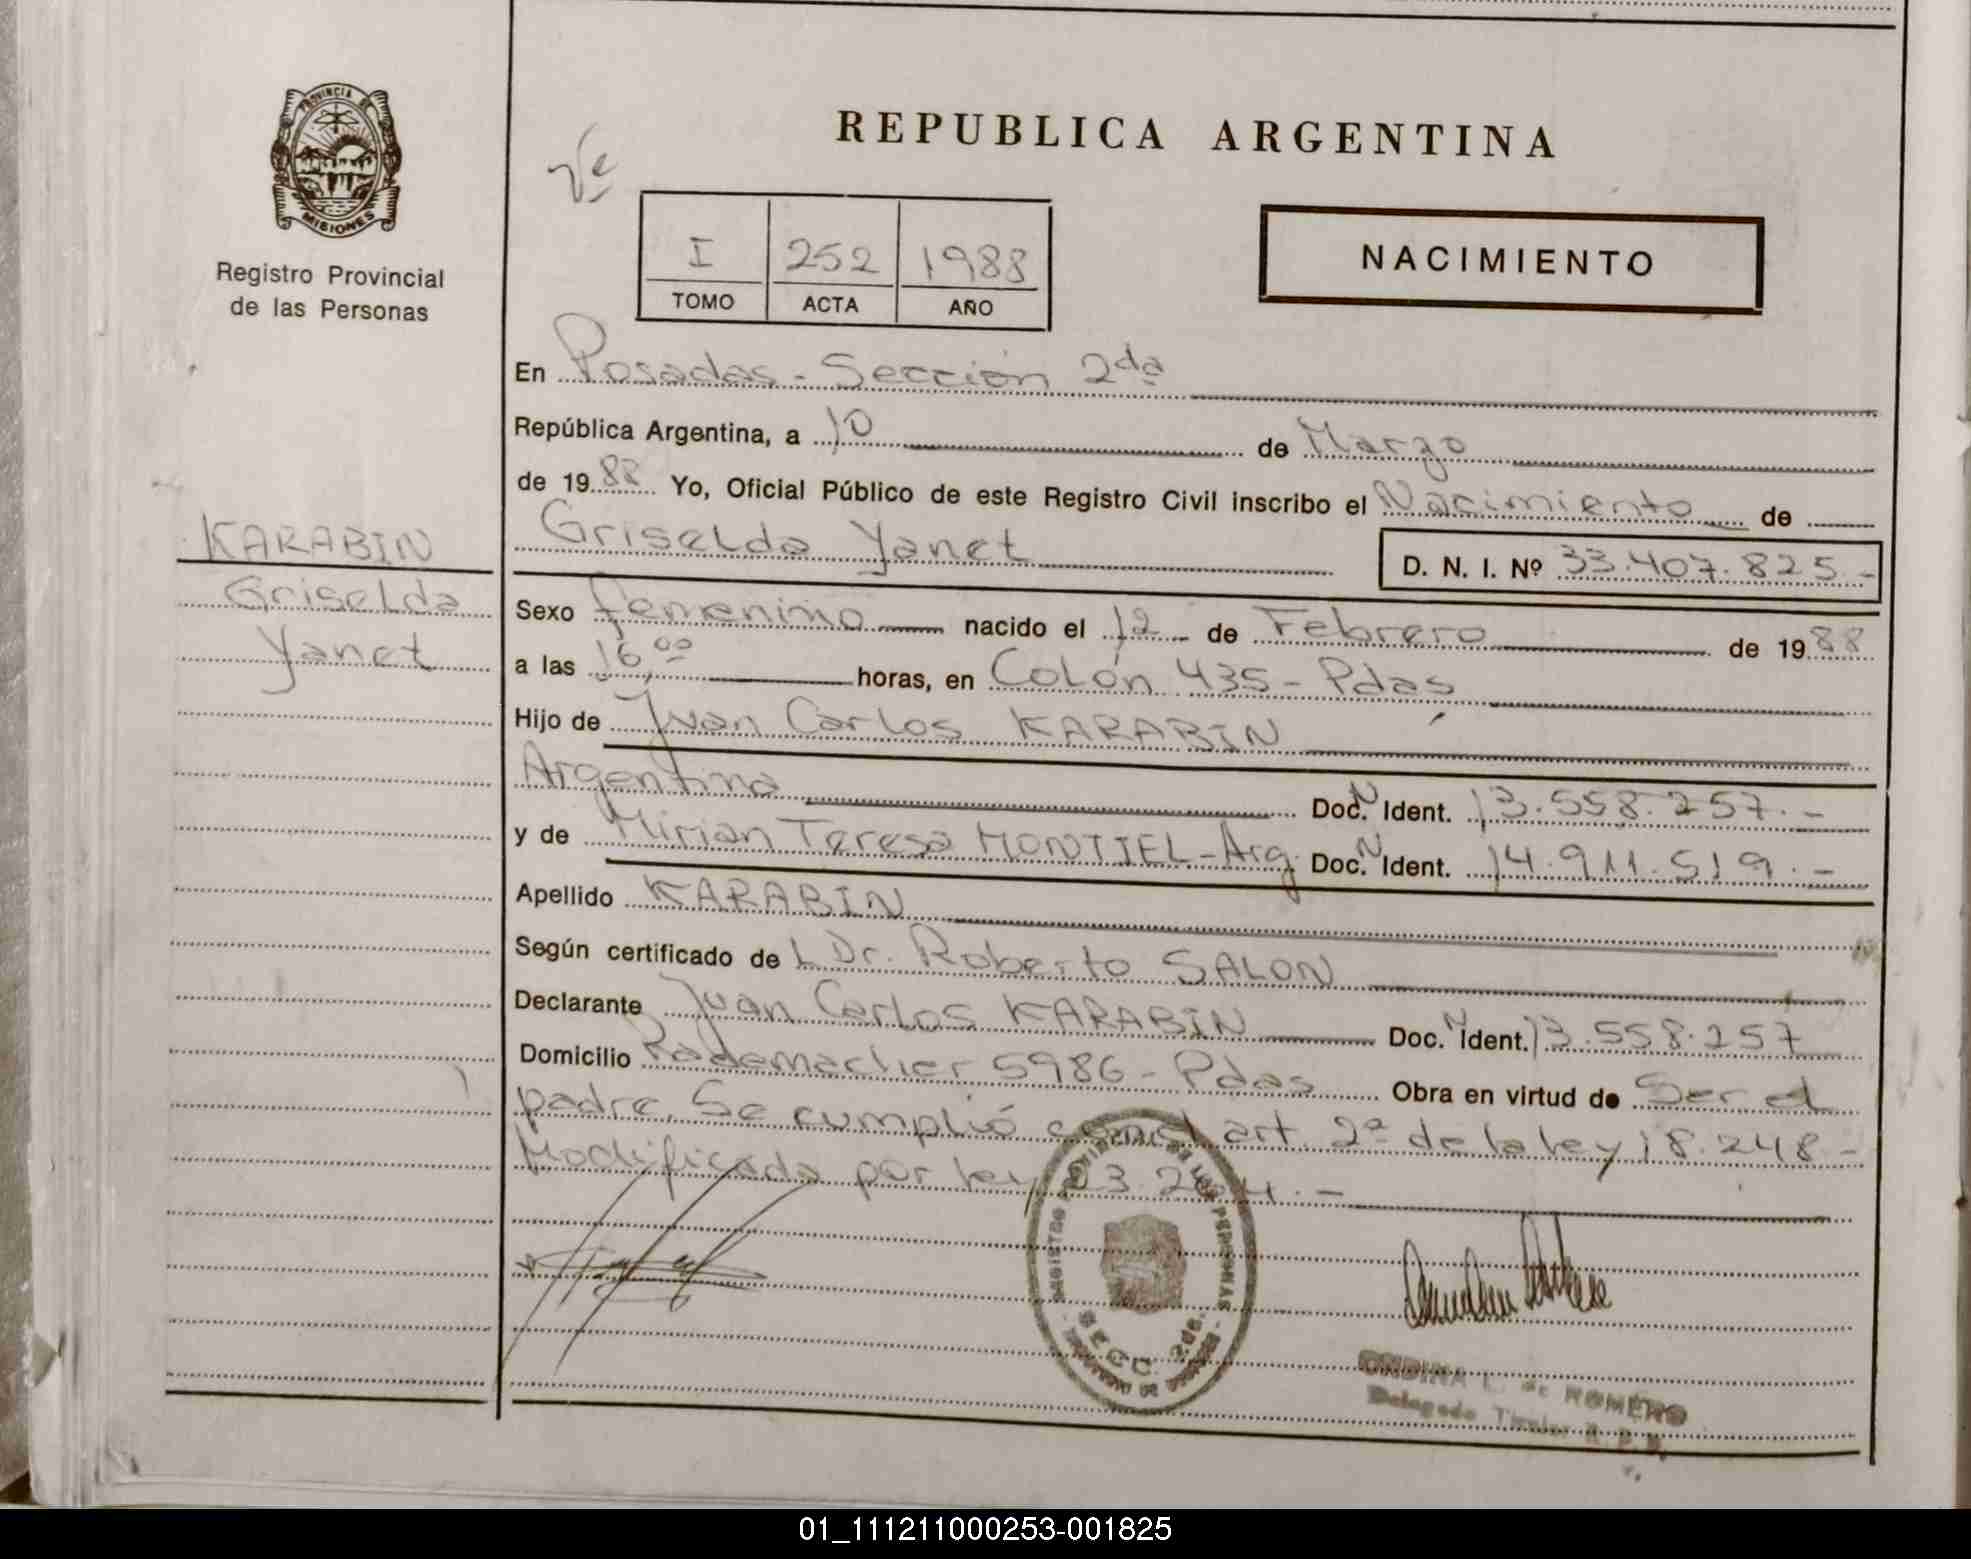 PROVINCIA DE
MISIONES
Registro Provincial
de las Personas
REPUBLICA ARGENTINA
I 252 1988
TOMO ACTA AÑO
NACIMIENTO
En Posadas - Sección 2da
República Argentina, a 10 de Marzo
de 1988 Yo, Oficial Público de este Registro Civil inscribo el Nacimiento de
Griselda Yanet D. N. I. Nº 33.407.825.-
KARABIN
Griselda
Yanet
Sexo femenino nacido el 12 de Febrero de 1988
a las 16,00 horas, en Colón 435 - Pdas
Hijo de Juan Carlos KARABIN
Argentino Doc. N Ident. 13.558.257.-
y de Mirian Teresa MONTIEL - Arg. Doc. N Ident. 14.911.519.-
Apellido KARABIN
Según certificado de L Dr. Roberto SALON
Declarante Juan Carlos KARABIN Doc. N Ident. 13.558.257
Domicilio Rademacher 5986 - Pdas Obra en virtud de Ser el
padre. Se cumplió con el art. 2º de la ley 18.248.-
Modificada por ley 23.264.-
REGISTRO DE LAS PERSONAS
SECC. 2da.
ONDINA L. de ROMERO
Delegada Titular R. P. P.
01_111211000253-001825